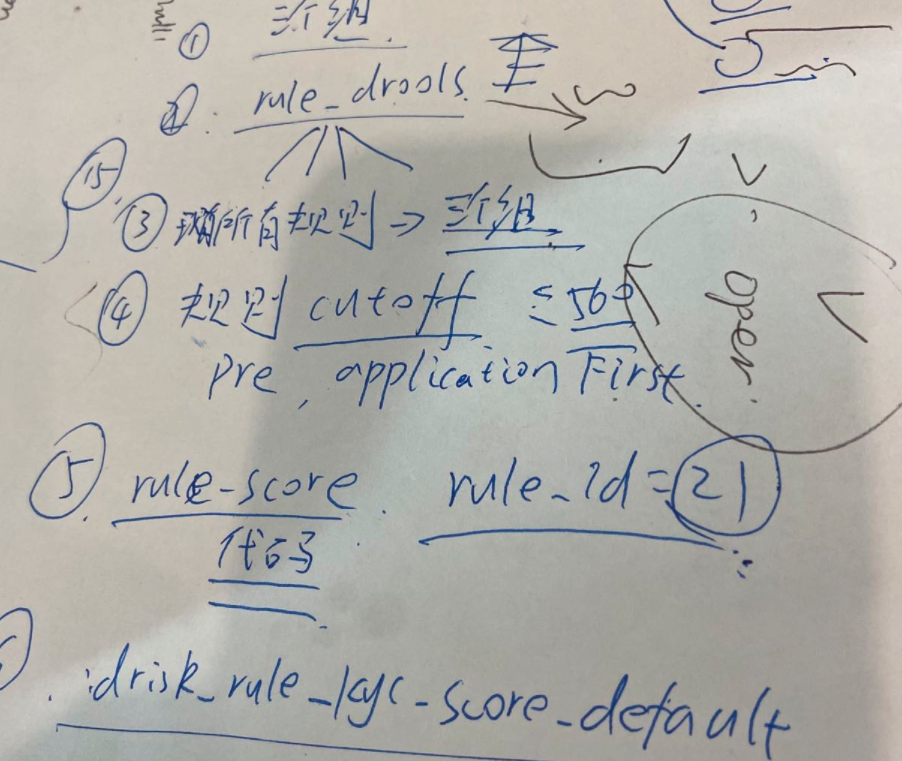 ① 三个组
② rule_drools 表
⑮
③ 所有规则 => 三个组
④ 规则 cutoff ≤ 560
pre, application First.
open
⑤ rule-score rule_id=21
代码
idrisk_rule_kyc-score_default